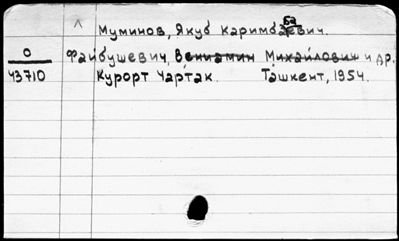 ^ Муминов, Якуб Каримбаевич.
О Файбушевич, Вениамин Михайлович и др.
43710 Курорт Чартак. Ташкент, 1954.